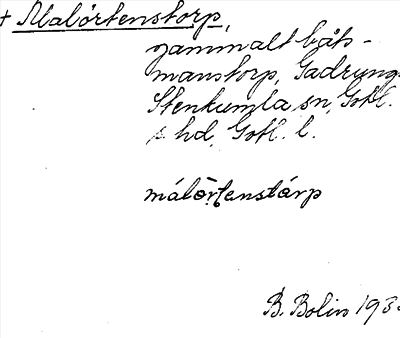 + Malörtenstorp,
gammalt båts-
manstorp, Gadrungs
Stenkumla sn, Gotl.
s. hd, Gotl. l.
málǫ̈rtenstårp
B. Bolin 193